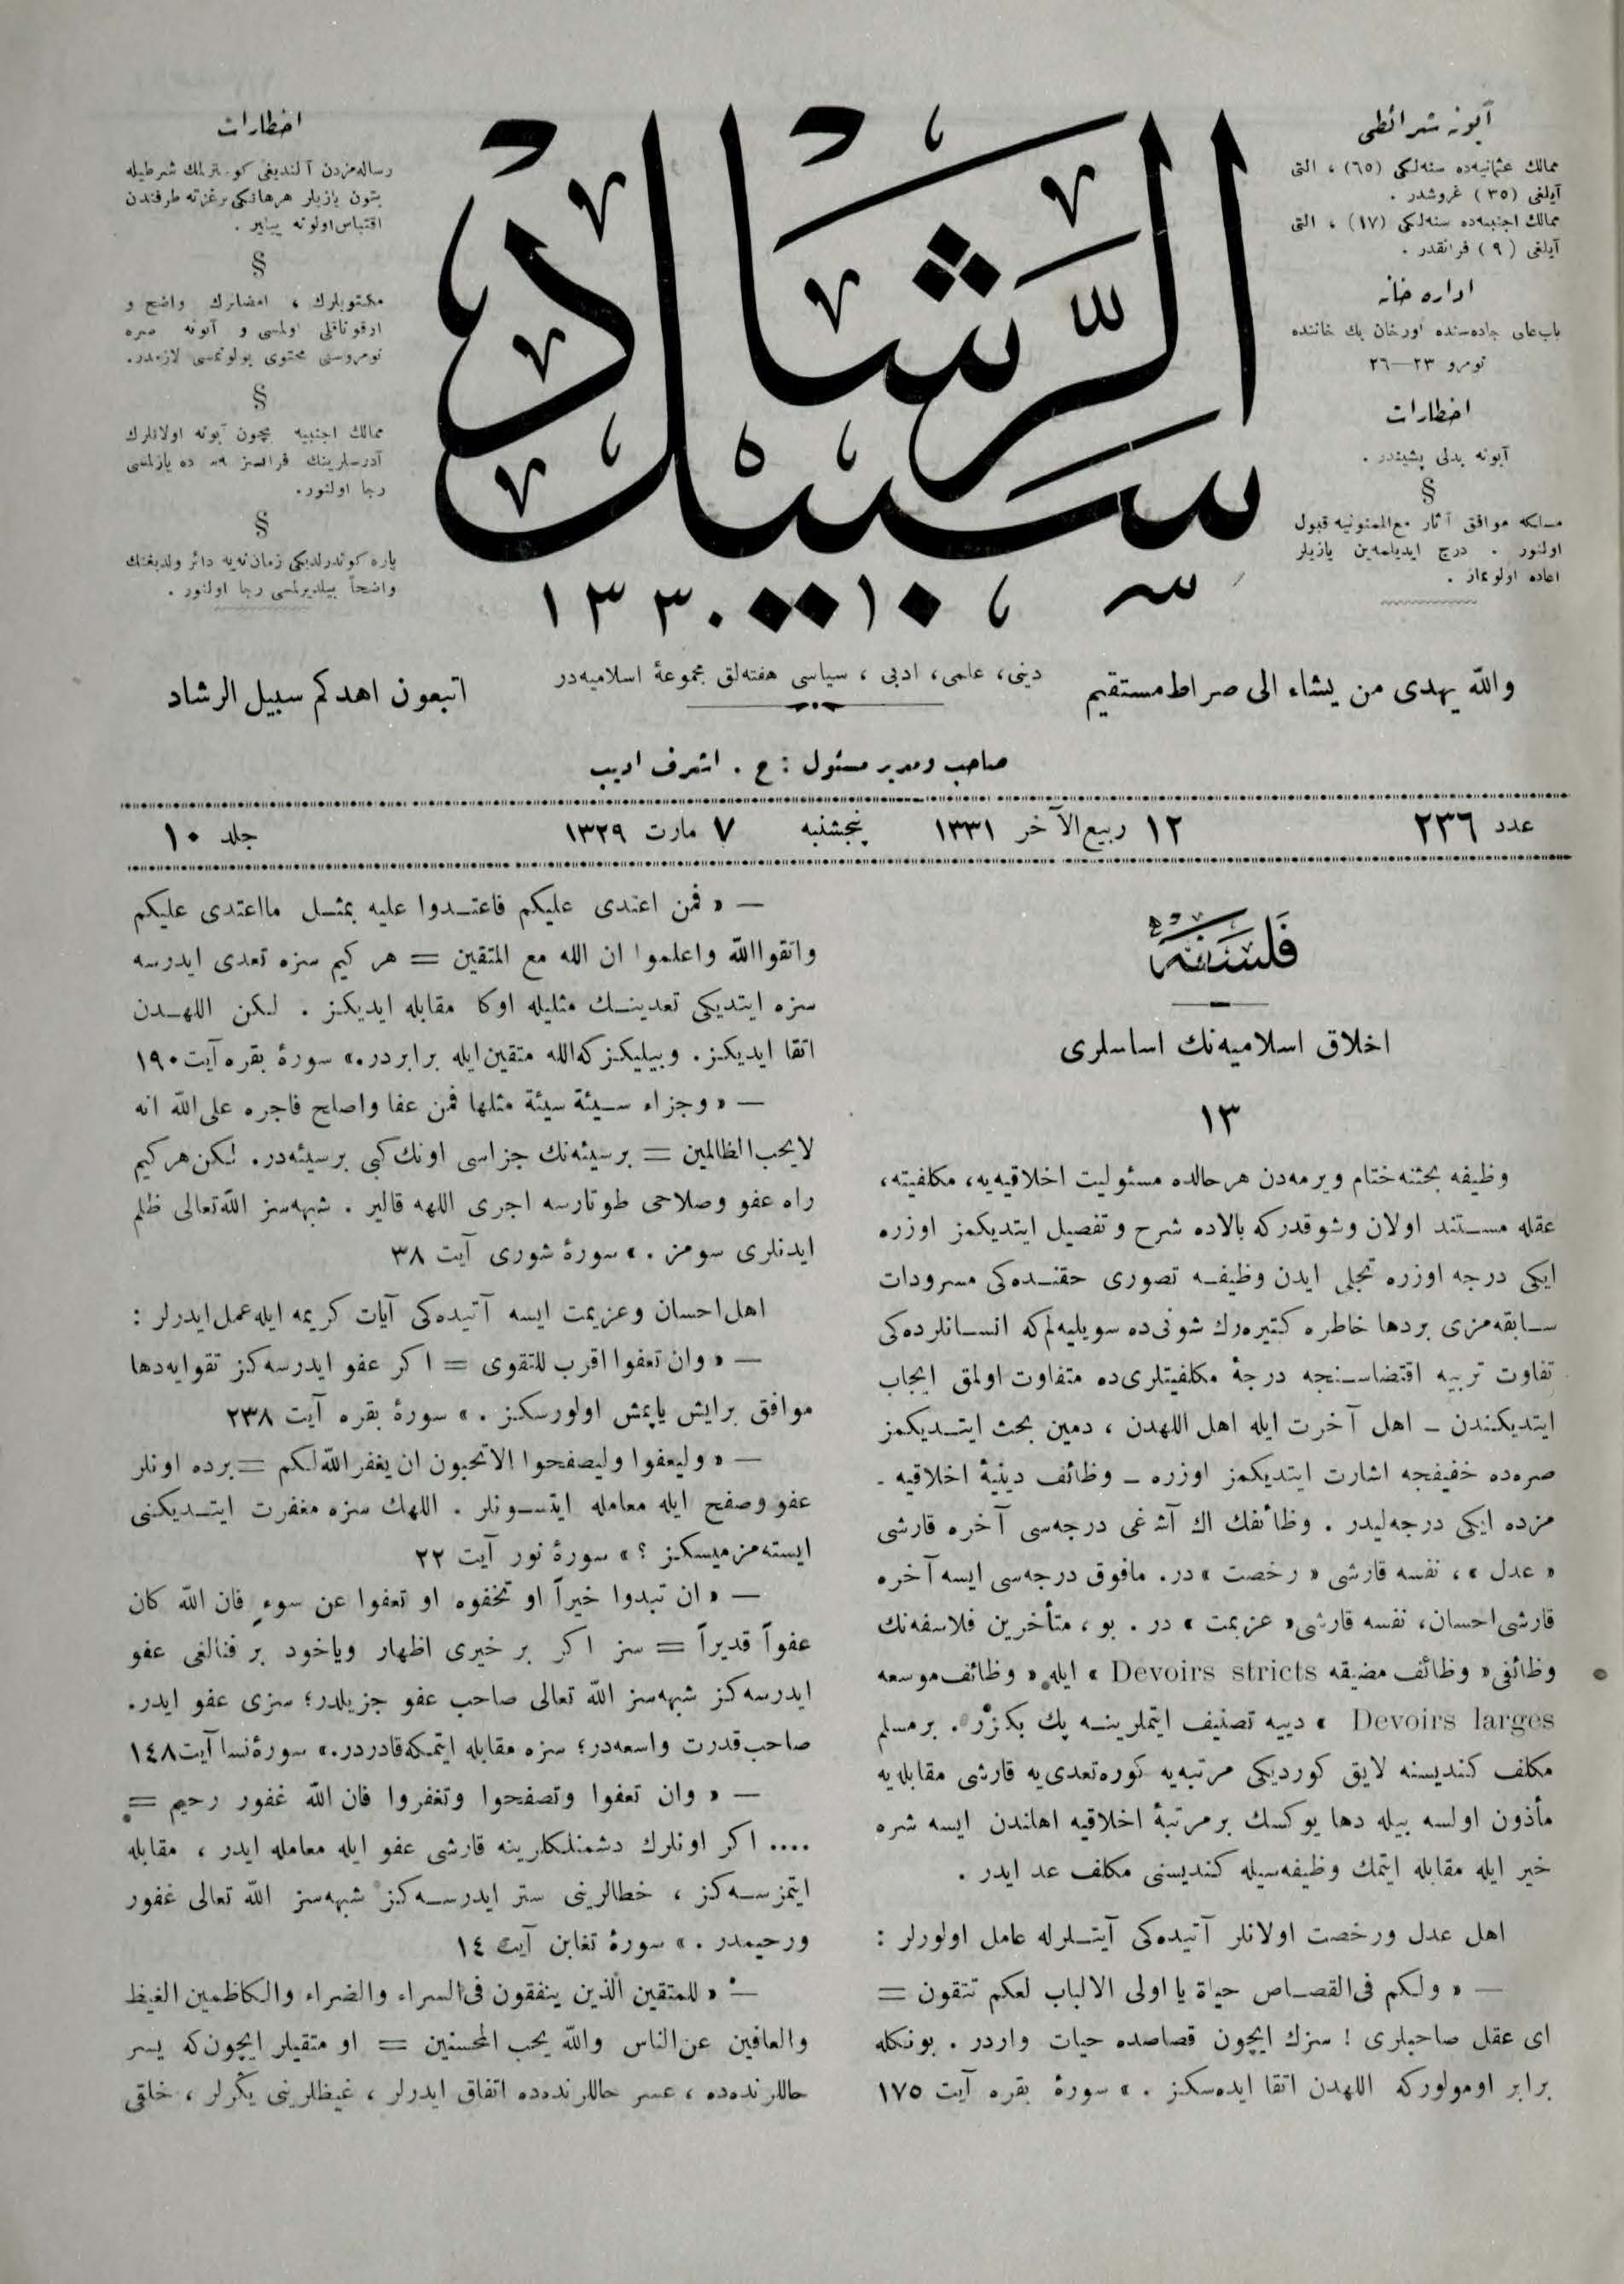 آبونه شرائطی
ممالك عثمانیه‌ده سنه‌لکی (٦٥) ، التی
آیلغی (٣٥) غروشدر .
ممالك اجنبیه‌ده سنه‌لکی (١٧) ، التی
آیلغی (٩) فرانقدر .
اداره خانه
باب‌عالی جاده‌سنده اورخان بك خاننده
نومرو ٢٣—٢٦
اخطارات
آبونه بدلی پشیندر .
§
مسلکه موافق آثار مع‌الممنونیه قبول
اولنور . درج ایدیلمه‌ین یازیلر
اعاده اولونماز .
سبیل الرشاد
١٣٣٠
اخطارات
رساله‌مزدن آلندیغی كوسترلمك شرطیله
بتون یازیلر هرهانکی برغزته طرفندن
اقتباس اولونه بیلیر .
§
مکتوبلرك ، امضالرك واضح و
اوقوناقلی اولمسی و آبونه صره
نومروسنی محتوی بولونمسی لازمدر.
§
ممالك اجنبیه ایچون آبونه اولانلرك
آدرسلرینك فرانسزجه ده یازلمسی
رجا اولنور.
§
پاره کوندرلدیکی زمان نه‌یه دائر اولدیغنك
واضحاً بیلدیرلمسی رجا اولنور .
دینی، علمی، ادبی ، سیاسی هفته‌لق مجموعهٔ اسلامیه‌در
والله یهدی من یشاء الی صراط مستقیم
اتبعون اهدکم سبیل الرشاد
صاحب ومدیر مسئول : ح . اشرف ادیب
عدد ٢٣٦ ١٢ ربیع‌الآخر ١٣٣١ پنجشنبه ٧ مارت ١٣٢٩ جلد ١٠
فلسفه
اخلاق اسلامیه‌نك اساسلری
١٣
وظیفه بحثنه ختام ویرمه‌دن هرحالده مسئولیت اخلاقیه‌یه، مکلفیته،
عقله مستند اولان وشوقدرکه بالاده شرح وتفصیل ایتدیکمز اوزره
ایکی درجه اوزره تجلی ایدن وظیفه تصوری حقنده‌کی مسرودات
سابقه‌مزی بردها خاطره کتیره‌رك شونی‌ده سویلیه‌لم‌که انسانلرده‌کی
تفاوت تربیه اقتضاسنجه درجهٔ مکلفیتلری‌ده متفاوت اولمق ایجاب
ایتدیکندن ـ اهل آخرت ایله اهل اللهدن ، دمین بحث ایتدیکمز
صره‌ده خفیفجه اشارت ایتدیکمز اوزره ـ وظائف دینیهٔ اخلاقیه ـ
مزده ایکی درجه‌لیدر . وظائفك اك آشاغی درجه‌سی آخره قارشی
« عدل » ، نفسه قارشی « رخصت » در. مافوق درجه‌سی ایسه آخره
قارشی احسان، نفسه قارشی « عزیمت » در . بو ، متأخرین فلاسفه‌نك
وظائفی « وظائف مضیقه Devoirs stricts » ایله « وظائف موسعه
Devoirs larges » دییه تصنیف ایتملرینه پك بکزر . برمسلم
مکلف کندیسنه لایق کوردیکی مرتبه‌یه کوره تعدی‌یه قارشی مقابله‌یه
مأذون اولسه بیله دها یوکسك برمرتبهٔ اخلاقیه اهلندن ایسه شره
خیر ایله مقابله ایتمك وظیفه‌سیله کندیسنی مکلف عد ایدر .
اهل عدل ورخصت اولانلر آتیده‌کی آیتلرله عامل اولورلر :
— « ولکم فی‌القصاص حیاة یا اولی الالباب لعلکم تتقون =
ای عقل صاحبلری ! سزك ایچون قصاصده حیات واردر . بونکله
برابر اومولورکه اللهدن اتقا ایده‌سکز . » سورهٔ بقره آیت ١٧٥
— « فمن اعتدی علیکم فاعتدوا علیه بمثل مااعتدی علیکم
واتقواالله واعلموا ان الله مع المتقین = هر کیم سزه تعدی ایدرسه
سزه ایتدیکی تعدینك مثلیله اوکا مقابله ایدیکز . لکن اللهدن
اتقا ایدیکز. وبیلیکز که‌الله متقین ایله برابردر.» سورهٔ بقره آیت ١٩٠
— « وجزاء سیئة سیئة مثلها فمن عفا واصلح فاجره علی‌الله انه
لایحب‌الظالمین = برسیئه‌نك جزاسی اونك کبی برسیئه‌در. لکن هرکیم
راه عفو وصلاحی طوتارسه اجری اللهه قالیر . شبهه‌سز الله‌تعالی ظلم
ایدنلری سومز . » سورهٔ شوری آیت ٣٨
اهل احسان وعزیمت ایسه آتیده‌کی آیات کریمه ایله عمل ایدرلر :
— « وان تعفوا اقرب للتقوی = اکر عفو ایدرسه‌کز تقوایه‌دها
موافق برایش یاپمش اولورسکز . » سورهٔ بقره آیت ٢٣٨
— « ولیعفوا ولیصفحوا الاتحبون ان یغفرالله‌لکم = برده اونلر
عفو وصفح ایله معامله ایتسونلر . اللهك سزه مغفرت ایتدیکنی
ایسته‌مزمیسکز ؟ » سورهٔ نور آیت ٢٢
— « ان تبدوا خیراً او تخفوه او تعفوا عن سوءٍ فان الله کان
عفواً قدیراً = سز اکر بر خیری اظهار ویاخود بر فنالغی عفو
ایدرسه‌کز شبهه‌سز الله تعالی صاحب عفو جزیلدر؛ سزی عفو ایدر.
صاحب‌قدرت واسعه‌در؛ سزه مقابله ایتمکه قادردر.» سورهٔ نسا آیت ١٤٨
— « وان تعفوا وتصفحوا وتغفروا فان الله غفور رحیم =
.... اکر اونلرك دشمنلکلرینه قارشی عفو ایله معامله ایدر ، مقابله
ایتمزسه‌کز ، خطالرینی ستر ایدرسه‌کز شبهه‌سز الله تعالی غفور
ورحیمدر . » سورهٔ تغابن آیت ١٤
— « للمتقین الذین ینفقون فی‌السراء والضراء والکاظمین الغیظ
والعافین عن‌الناس والله یحب المحسنین = او متقیلر ایچون‌که یسر
حاللرنده‌ده ، عسر حاللرنده‌ده اتفاق ایدرلر ، غیظلرینی یکرلر ، خلقی